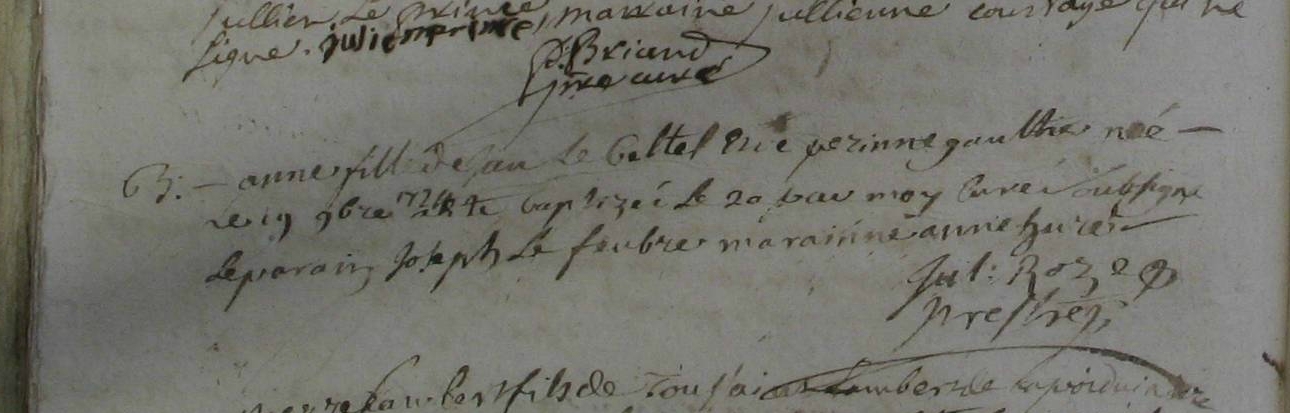 jullien Le prince, marraine jullienne courraye qui ne
signe. julienprince
J: Briand
ptre curé
B: - anne fille de jan Le Beltel et de perinne gaultier née -
le 19 9bre 1724 baptizée le 20 par moy curé soubsigne
le parain Joseph Le feubre marainne anne hurel -
Jul: Roze
prestre
fils de Tousaint Lambert de